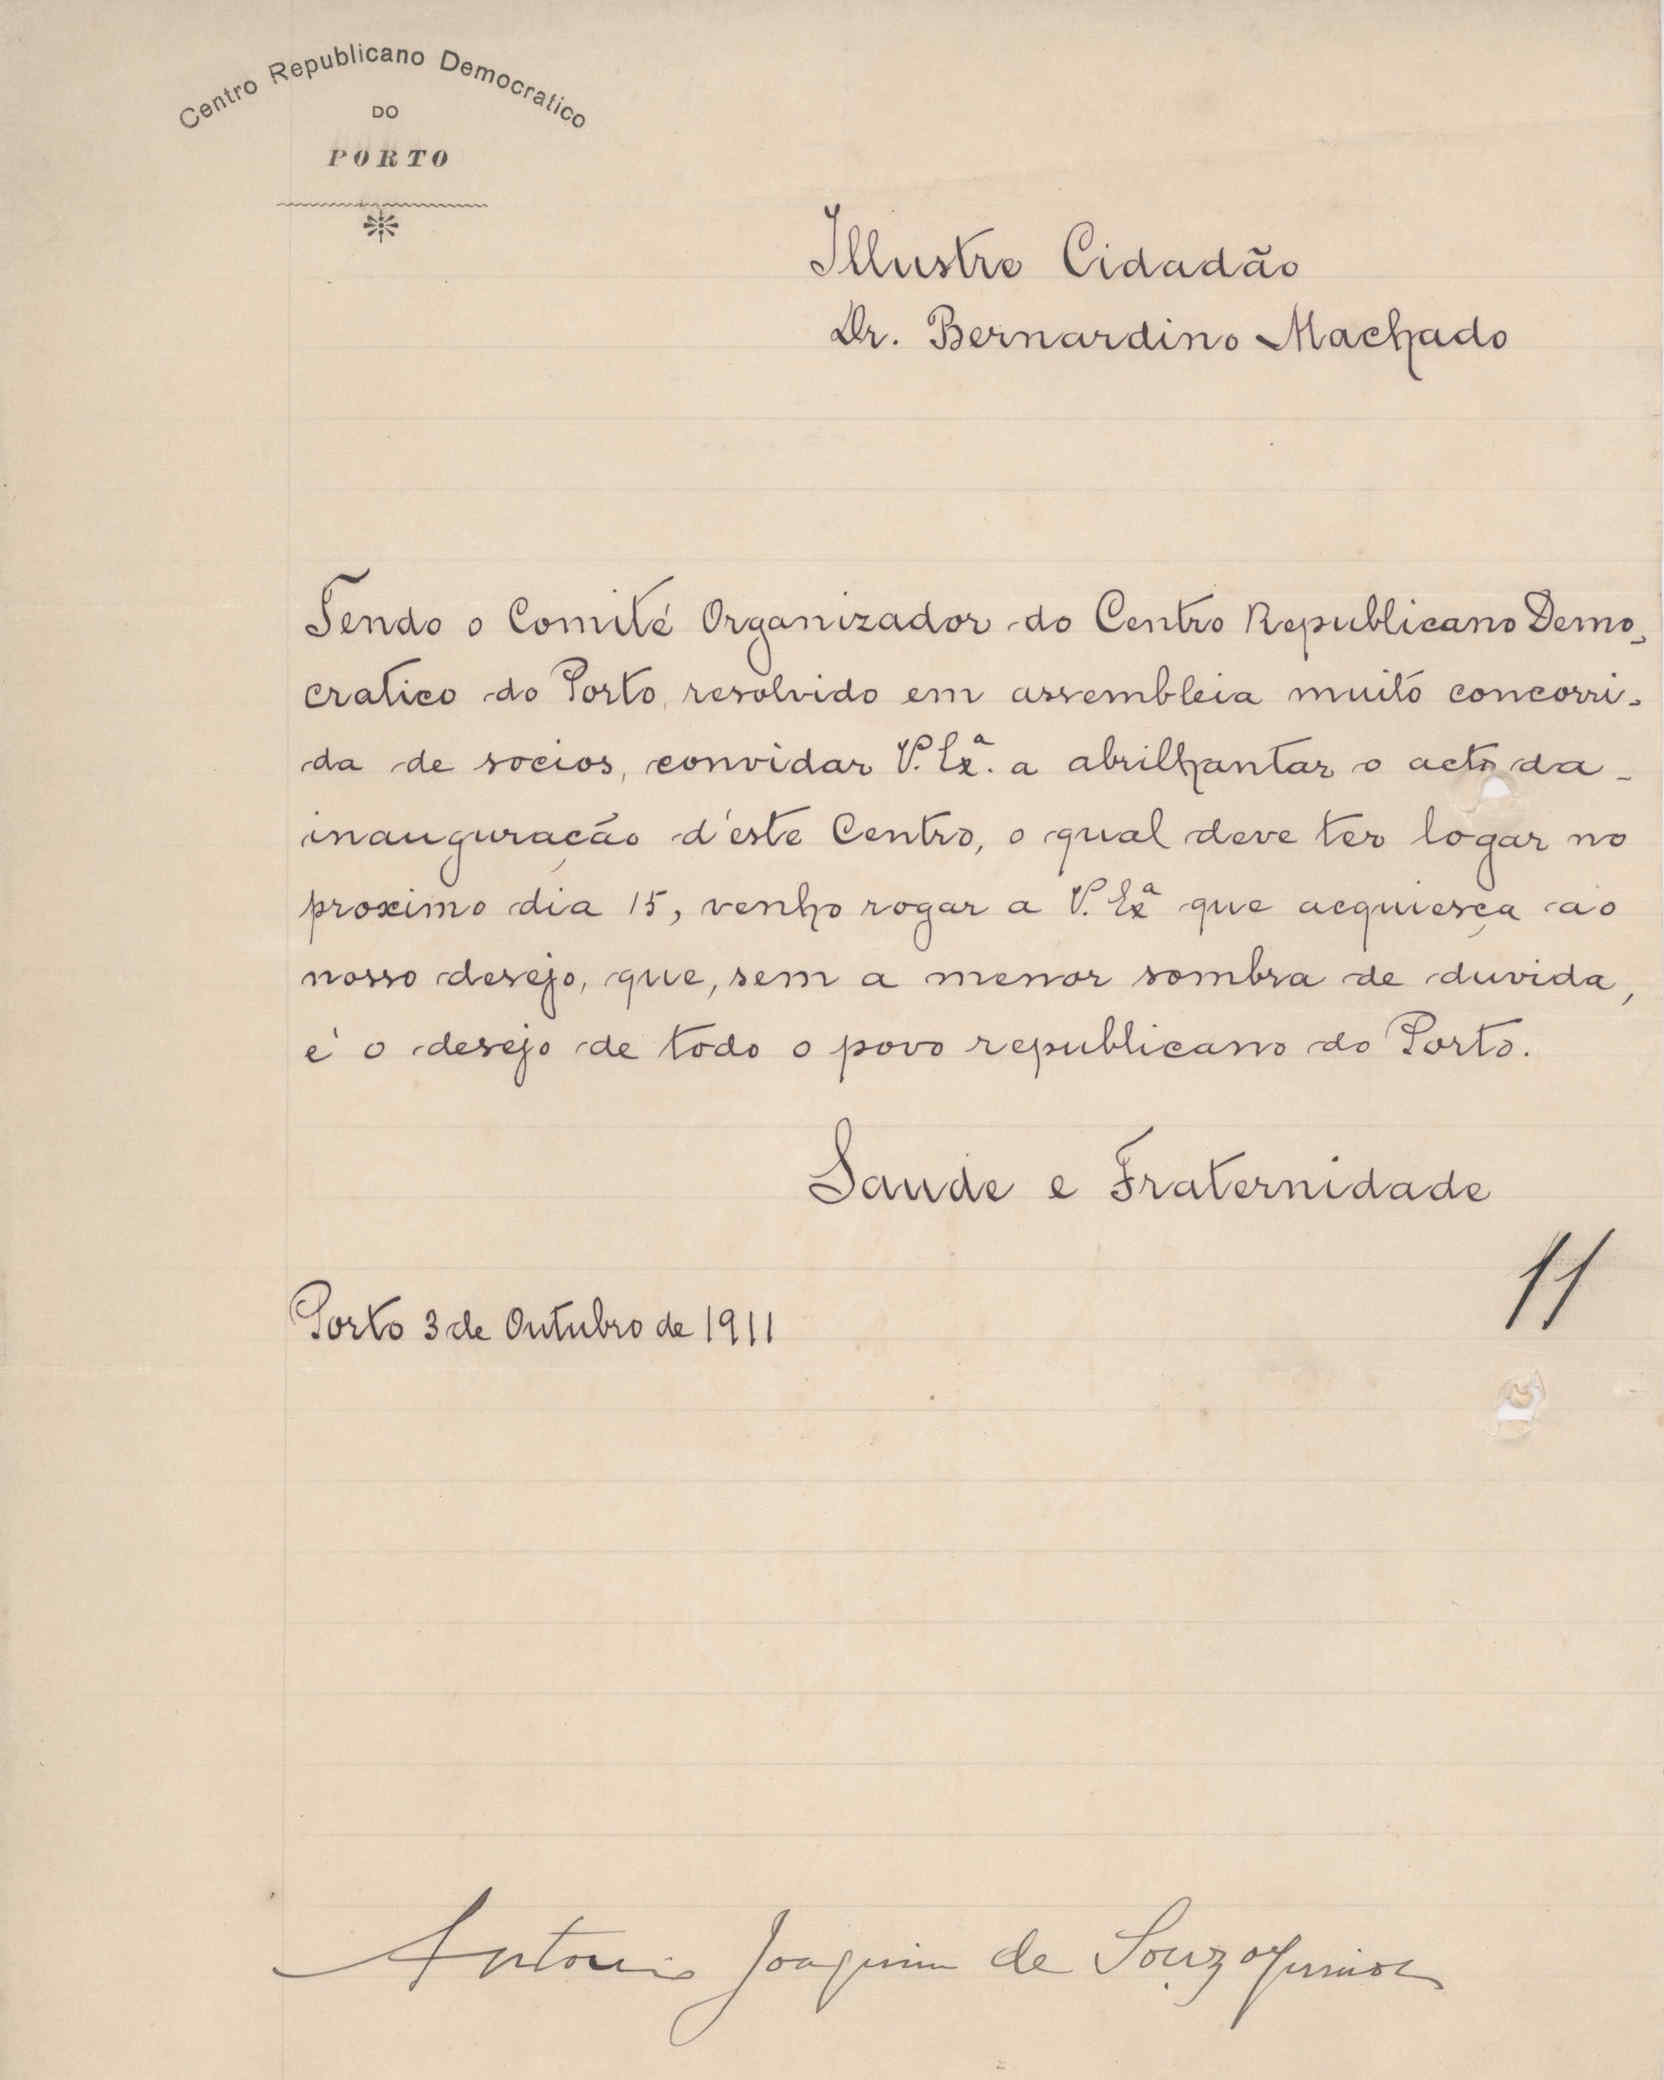 Centro Republicano Democratico
DO
PORTO
Illustre Cidadão
Dr. Bernardino Machado
Tendo o Comité Organizador do Centro Republicano Demo-
cratico do Porto, resolvido em assembleia muito concorri-
da de socios, convidar V. Exª. a abrilhantar o acto da
inauguração d'este Centro, o qual deve ter logar no
proximo dia 15, venho rogar a V. Exª que acquiesça ao
nosso desejo, que, sem a menor sombra de duvida,
é o desejo de todo o povo republicano do Porto.
Saude e Fraternidade
11
Porto 3 de Outubro de 1911
Antonio Joaquim de Souza Junior